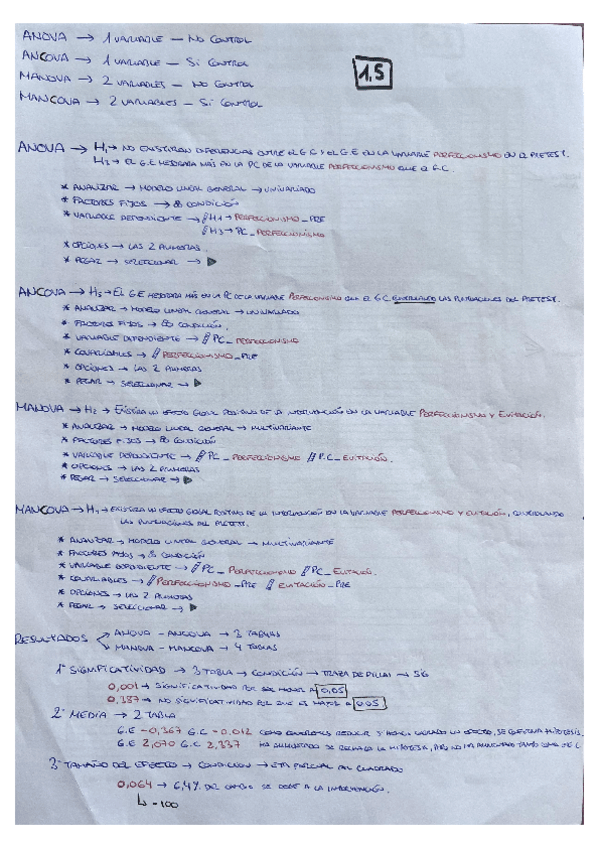 ANOVA → 1 VARIABLE — NO CONTROL
ANCOVA → 1 VARIABLE — SI CONTROL
MANOVA → 2 VARIABLES — NO CONTROL
MANCOVA → 2 VARIABLES — SI CONTROL
1.5
ANOVA → H1 → NO EXISTIRAN DIFERENCIAS ENTRE EL G.C Y EL G.E EN LA VARIABLE PERFECCIONISMO EN EL PRETEST.
→ EL G.E MEJORARA MÁS EN LA PC DE LA VARIABLE PERFECCIONISMO QUE EL G.C.
* ANALIZAR → MODELO LINEAL GENERAL → UNIVARIADO
* FACTORES FIJOS → CONDICIÓN
* VARIABLE DEPENDIENTE → H1 → PERFECCIONISMO_PRE
H3 → PC_PERFECCIONISMO
* OPCIONES → LAS 2 PRIMERAS.
* PEGAR → SELECCIONAR → ▶
ANCOVA → → EL G.E MEJORARA MÁS EN LA PC DE LA VARIABLE PERFECCIONISMO QUE EL G.C CONTROLANDO LAS PUNTUACIONES DEL PRETEST.
* ANALIZAR → MODELO LINEAL GENERAL → UNIVARIADO
* FACTORES FIJOS → CONDICIÓN.
* VARIABLE DEPENDIENTE → PC_PERFECCIONISMO
* COVARIABLES → PERFECCIONISMO_PRE
* OPCIONES → LAS 2 PRIMERAS
* PEGAR → SELECCIONAR → ▶
MANOVA → H2 → EXISTIRA UN EFECTO GLOBAL POSITIVO DE LA INTERVENCIÓN EN LA VARIABLE PERFECCIONISMO Y EVITACIÓN.
* ANALIZAR → MODELO LINEAL GENERAL → MULTIVARIANTE
* FACTORES FIJOS → CONDICIÓN
* VARIABLE DEPENDIENTE → PC_PERFECCIONISMO P.C_EVITACIÓN.
* OPCIONES → LAS 2 PRIMERAS
* PEGAR → SELECCIONAR → ▶
MANCOVA → H4 → EXISTIRA UN EFECTO GLOBAL POSITIVO DE LA INTERVENCIÓN EN LA VARIABLE PERFECCIONISMO Y EVITACIÓN, CONTROLANDO
LAS PUNTUACIONES DEL PRETEST.
* ANALIZAR → MODELO LINEAL GENERAL → MULTIVARIANTE
* FACTORES FIJOS → CONDICIÓN
* VARIABLE DEPENDIENTE → PC_PERFECCIONISMO PC_EVITACIÓN.
* COVARIABLES → PERFECCIONISMO_PRE EVITACIÓN_PRE
* OPCIONES → LAS 2 PRIMERAS
* PEGAR → SELECCIONAR → ▶
RESULTADOS ANOVA - ANCOVA → 3 TABLAS
MANOVA - MANCOVA → 4 TABLAS
1º SIGNIFICATIVIDAD → 3 TABLA → CONDICIÓN → TRAZA DE PILLAI → SIG
0,001 → SIGNIFICATIVIDAD POR SER MENOR A 0,05
0,387 → NO SIGNIFICATIVIDAD POR QUE ES MAYOR A 0,05.
2º MEDIA → 2 TABLA
G.E -0,367 G.C -0.012 COMO QUEREMOS REDUCIR Y UN EFECTO, SE HIPÓTESIS.
G.E 2,070 G.C 2,337 HA AUMENTADO SE RECHAZA LA HIPÓTESIS, NO HA AUMENTADO TANTO COMO
3º TAMAÑO DEL EFECTO → CONDICION → ETA PARCIAL AL CUADRADO
0,064 → 6,4% DEL CAMBIO SE DEBE A LA INTERVENCIÓN.
↳ · 100